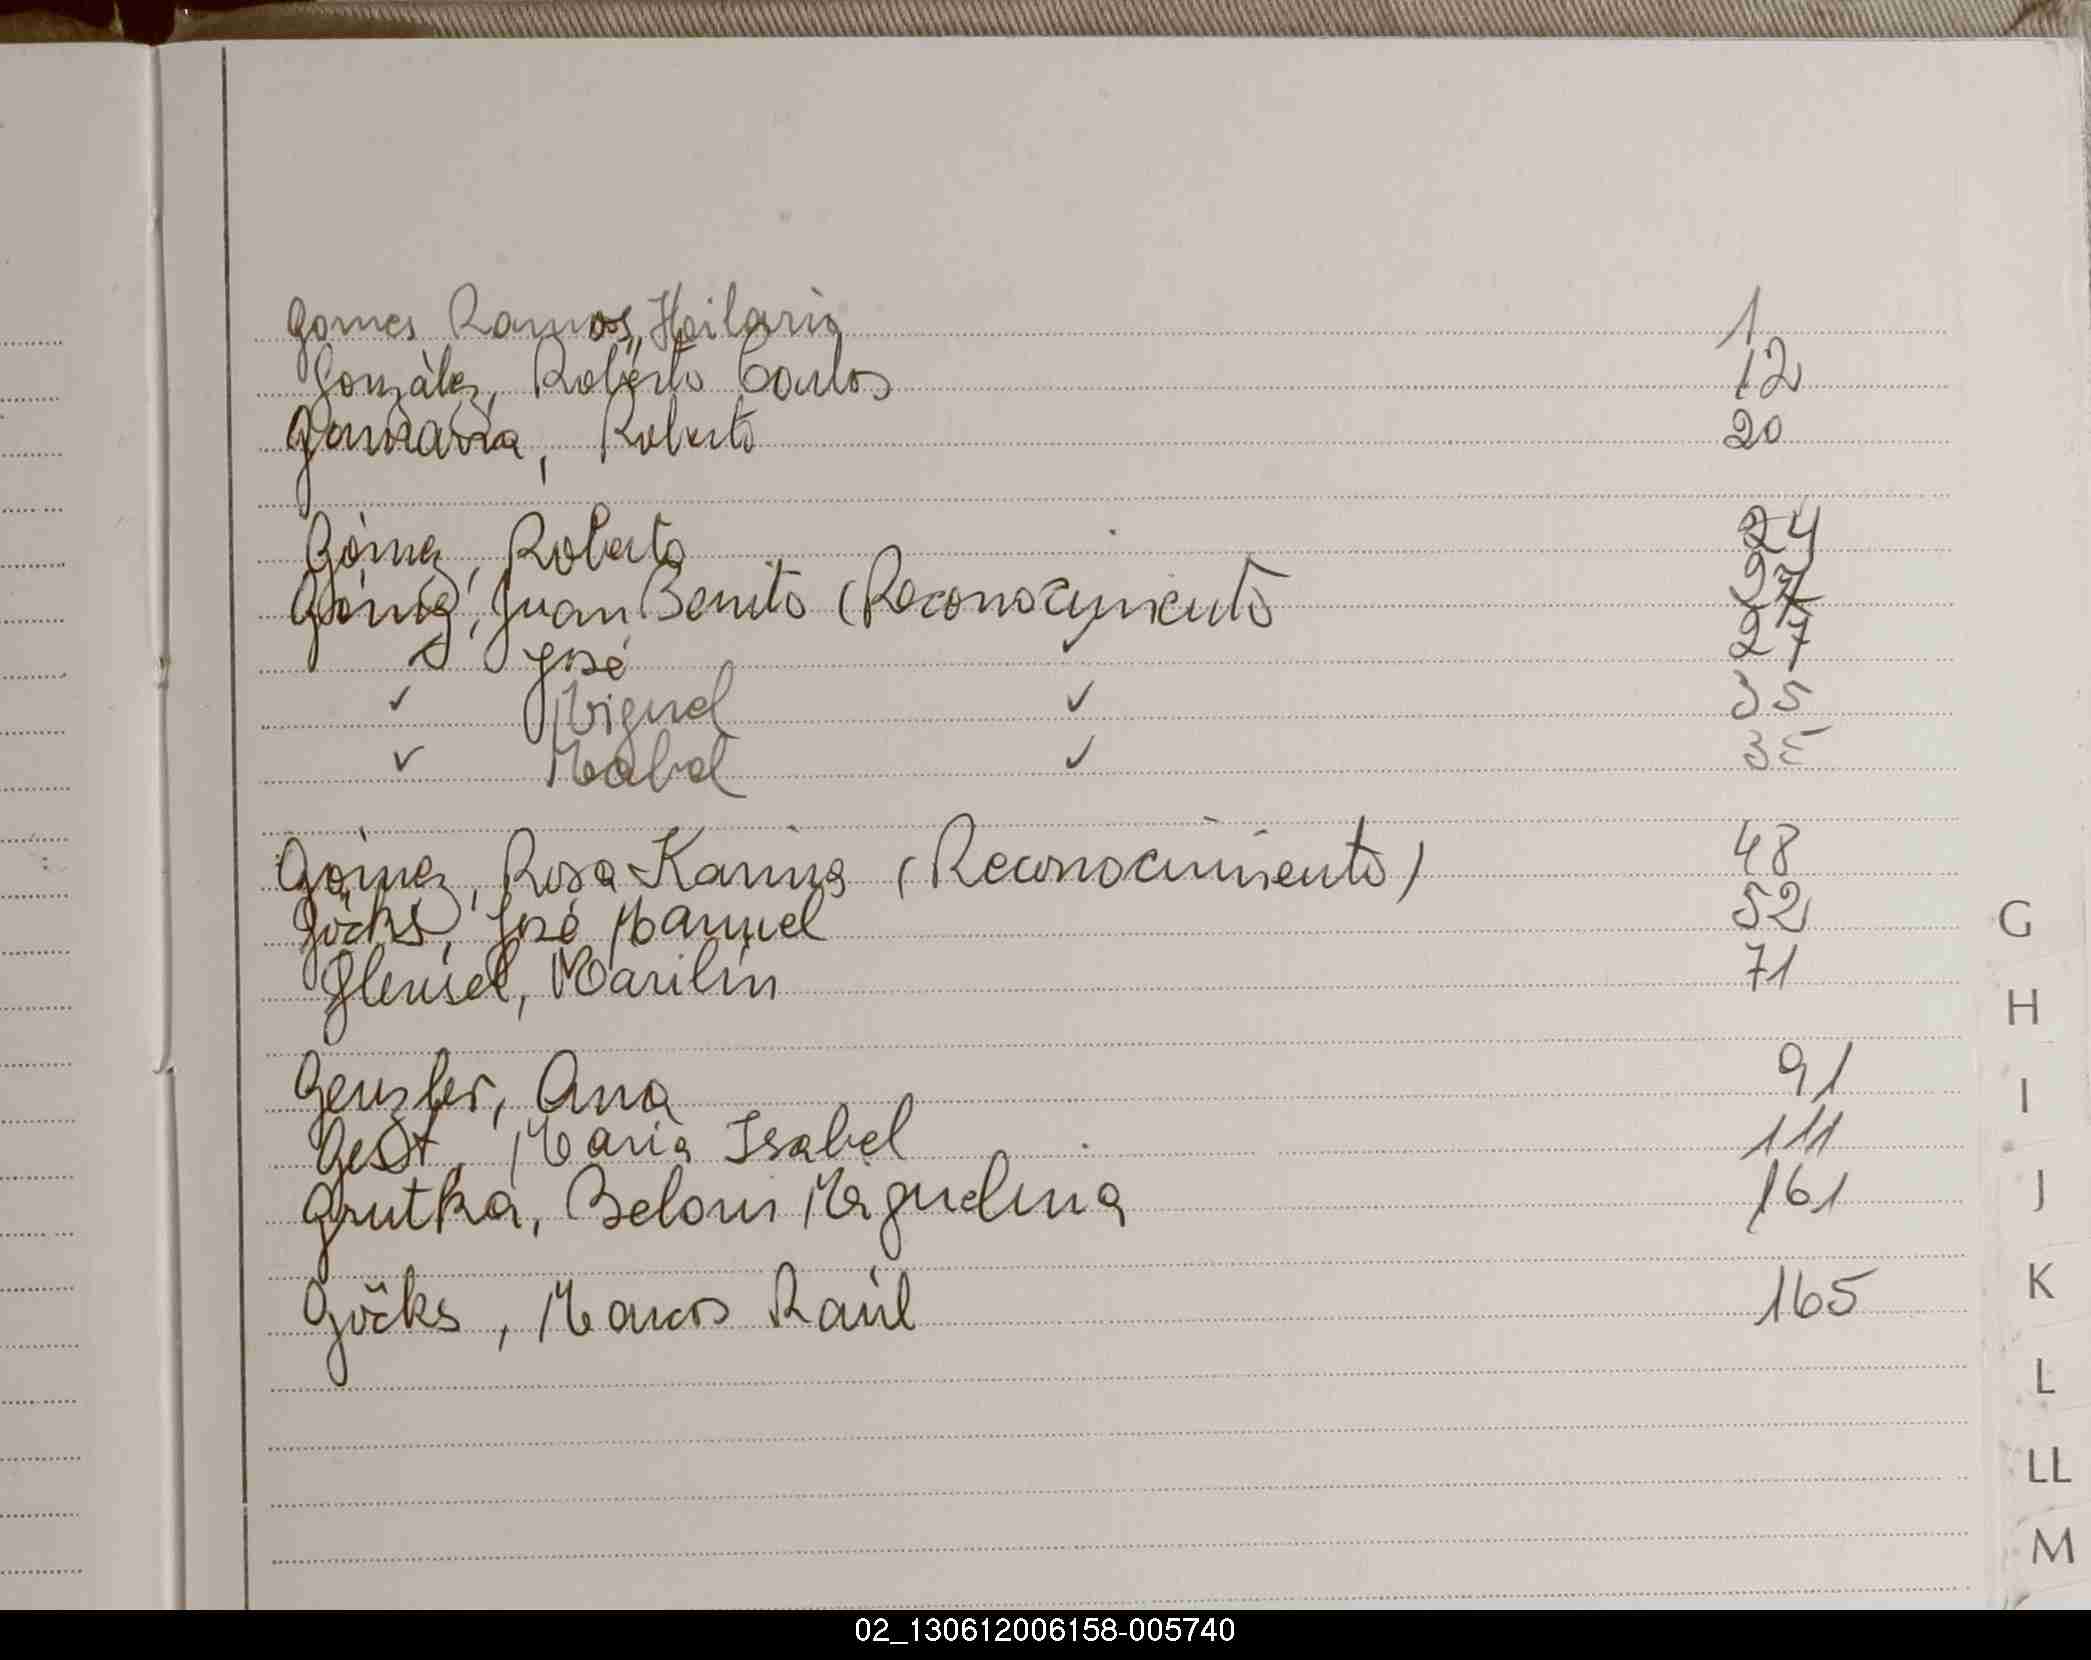 Gomes Ramos, Heilario 1
González, Roberto Carlos 12
Roberto 20
Gómez, Roberto 24
Gómez, Juan Benito (Reconocimiento 27
✓ José ✓ 27
✓ Miguel ✓ 35
✓ Mabel ✓ 35
Gómez, Rosa Karina (Reconocimiento) 48
Göcks, José Manuel 52
Gleusel, Marilin 71
Genzler, Ana 91
Gest, María Isabel 111
Grutka, Beloni Miguelina 161
Göcks, Marcos Raúl 165
G
H
I
J
K
L
LL
M
02_130612006158-005740